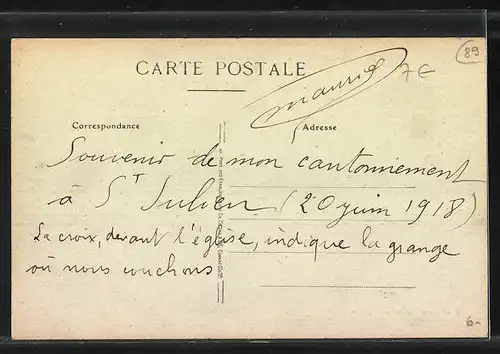 89
CARTE POSTALE
7€
Maurice
Correspondance
Adresse
Souvenir de mon cantonnement
à St Julien (20 juin 1918)
La croix, devant l'église, indique la grange
où nous couchons
6-